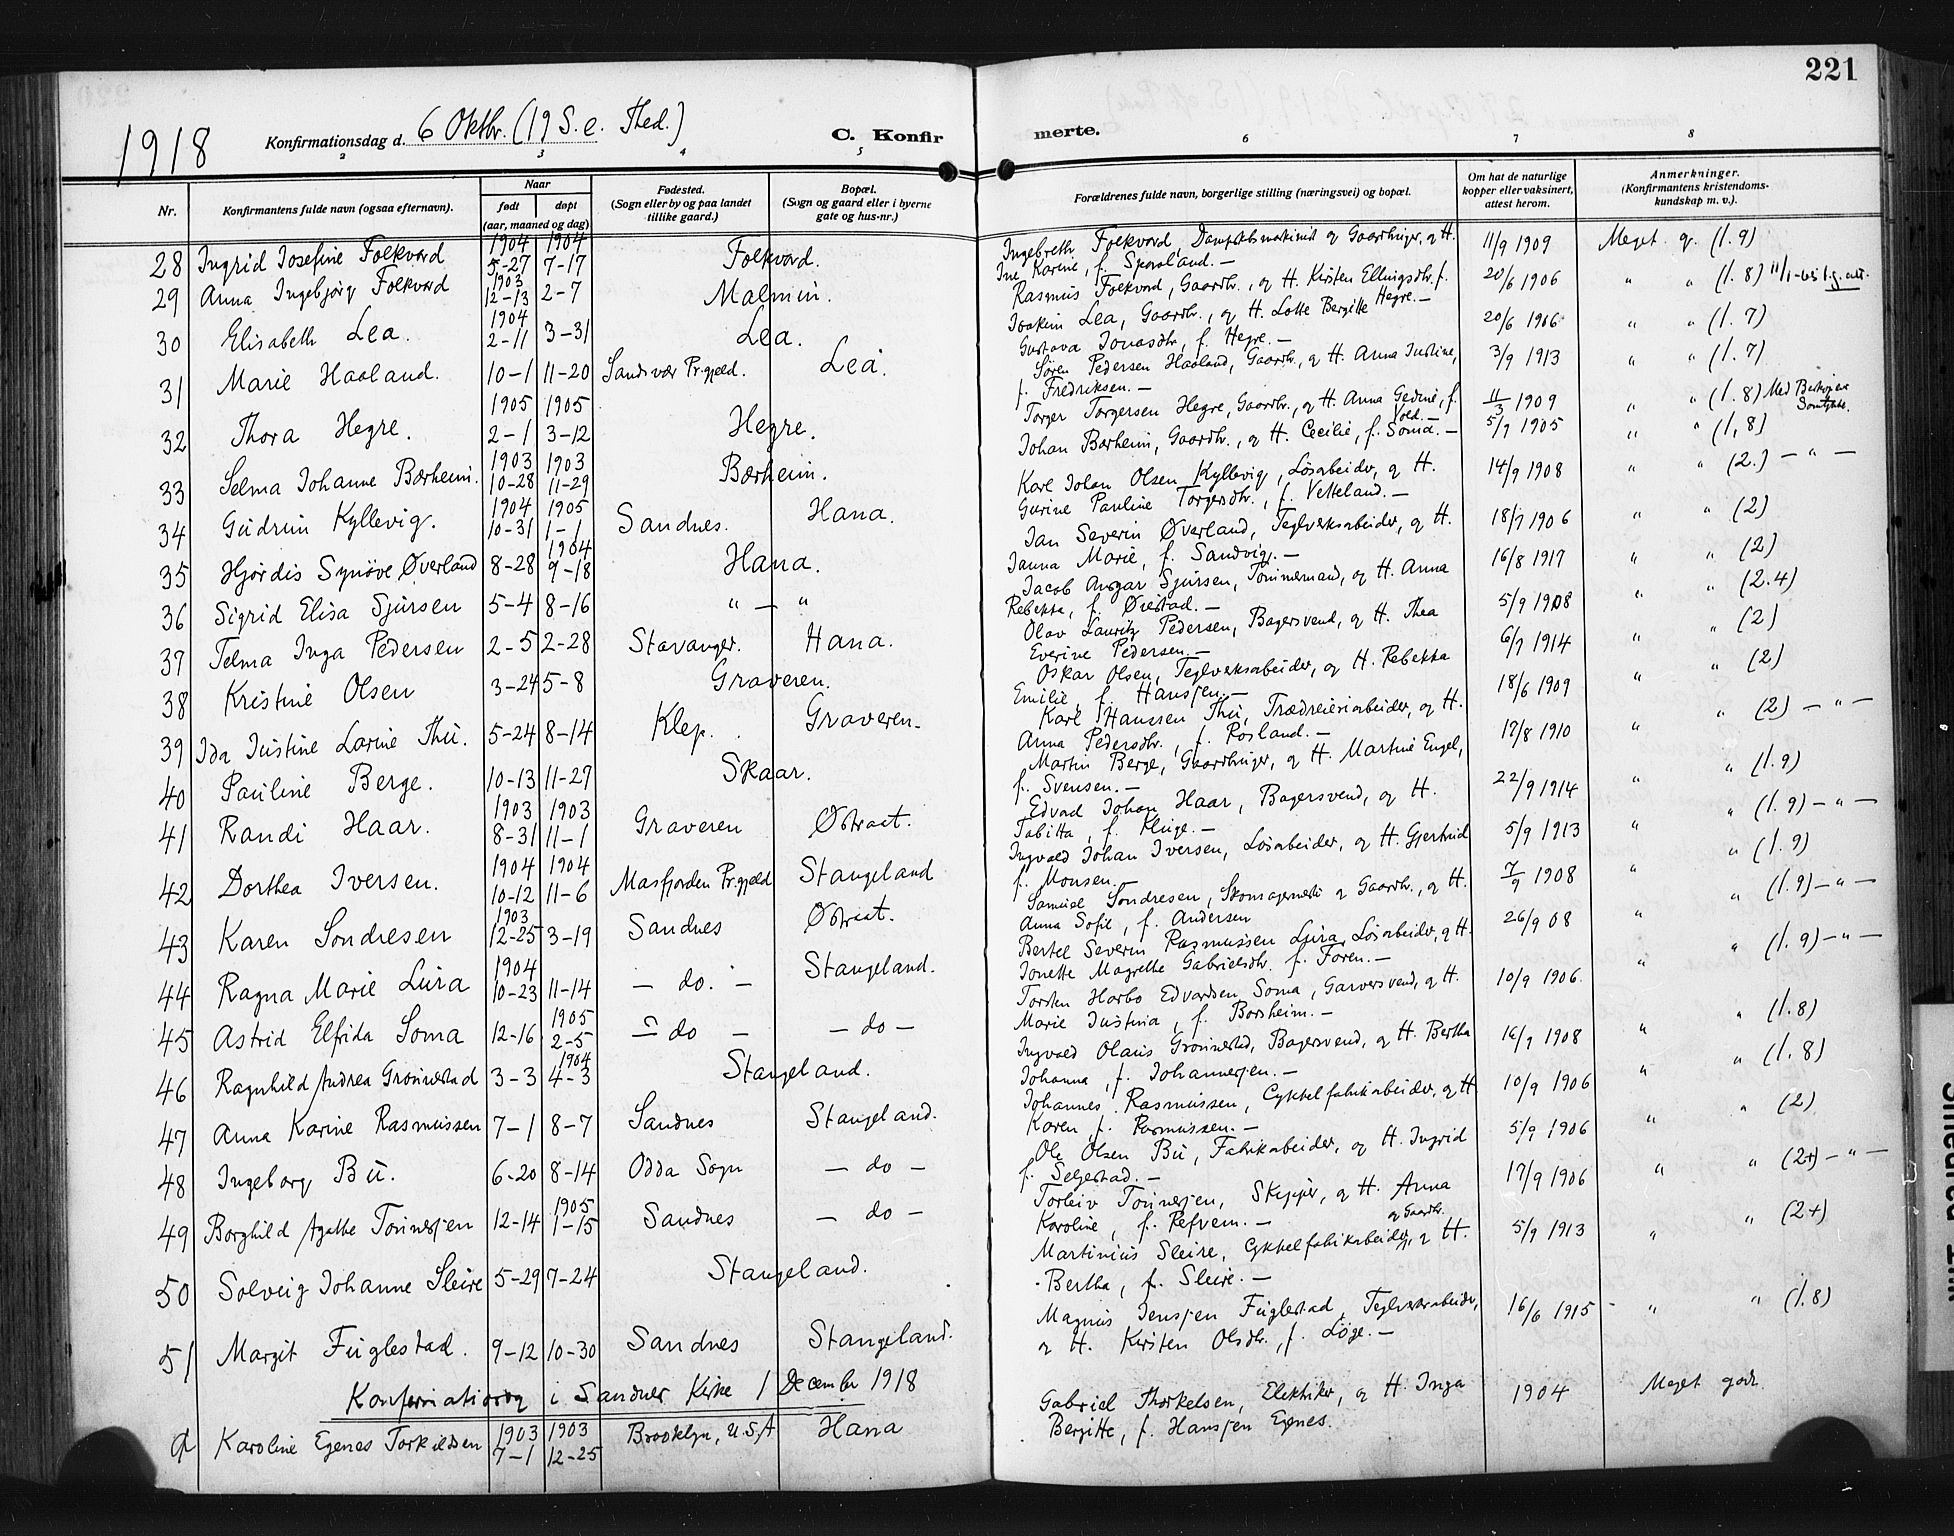 221
1918 Konfirmationsdag d. 6 Oktbr. (19 S. e. Tred.) C. Konfir merte.
2 3 4 5 6 7 8
Nr. Konfirmantens fulde navn (ogsaa efternavn). Naar født døpt (aar, maaned og dag) Fødested. (Sogn eller by og paa landet tillike gaard.) Bopæl. (Sogn og gaard eller i byerne gate og hus-nr.) Forældrenes fulde navn, borgerlige stilling (næringsvei) og bopæl. Om hat de naturlige kopper eller vaksinert, attest herom. Anmerkninger. (Konfirmantens kristendomskundskap m. v.).
28 Ingrid Josefine Folkvord 1904 5-27 1904 7-17 Folkvord. Ingebreth Folkvord, og Gaardbruger, og H. Ine Karine, f. 11/9 1909 Meget g. (1.9)
29 Anna Ingebjørg Folkvord 1903 12-13 2-7 Malmin. Rasmus Folkvord, Gaardbr., og H. Kirsten Ellingsdtr. f. Hegre. — 20/6 1906 " " (1.8)
30 Elisabeth Lea. 1904 2-11 3-31 Lea. Joakim Lea, Gaardbr., og H. Lotte Bergitte Gustava Jonasdtr, f. Hegre. — 20/6 1906 " " (1.7)
31 Marie Haaland. 10-1 11-20 Sandsvær Pr.gjeld. Lea. Sören Pedersen Haaland, Gaardbr., og H. Anna Justine, f. Fredriksen. — 3/9 1913 " " (1.7)
32 Thora Hegre. 1905 2-1 1905 3-12 Hegre. Torger Torgersen Hegre, Gaardbr., og H. Anna Gedine, f. Vold. — 11/3 1909 " " (1.8)
33 Selma Johanne Bærheim. 1903 10-28 1903 11-29 Bærheim. Johan Bærheim, Gaardbr., og H. Cecilie, f. Soma. — 5/9 1905 " " (1,8)
34 Gudrun Kyllevig. 1904 10-31 1905 1-1 Sandnes. Hana. Karl Johan Olsen Kyllevig, Løsarbeider, og H. Gurine Pauline Torgersdtr., f. Vetteland. — 14/9 1908 " " (2.) — " —
35 Hjördis Synöve Øverland 8-28 1904 9-18 Hana. Jan Severin Øverland, Teglverksarbeider, og H. Janna Marie, f. Sandvig. — 18/9 1906 " " (2)
36 Sigrid Elisa Sjursen 5-4 8-16 " — " Jacob Ansgar Sjursen, Tömmermand, og H. Anna Rebekka, f. Örestad. — 16/8 1917 " " (2)
37 Telma Inga Pedersen 2-5 2-28 Stavanger. Hana. Olav Lauritz Pedersen, Bagersvend, og H. Thea Everine Pedersen. — 5/9 1908 " " (2.4)
38 Kristine Olsen 3-24 5-8 Graveren. Oskar Olsen, Teglverksarbeider, og H. Rebekka Emilie, f. Hansen. — 6/9 1914 " " (2)
39 Ida Justine Larine Thu. 5-24 8-14 Klep. Graveren. Karl Hanssen Thu, Trædreieriarbeider, og H. Anna Pedersdtr., f. Rosland. — 18/6 1909 " " (2)
40 Pauline Berge. 10-13 11-27 Skaar. Martin Berge, Gaardbruger, og H. Martine Engel, f. Svensen. — 17/8 1910 " " (2) — " —
41 Randi Haar. 1903 8-31 1903 11-1 Graveren Østraat. Edvad Johan Haar, Bagersvend, og H. Tabitta, f. Kluge. — 22/9 1914 " " (1.9)
42 Dorthea Iversen. 1904 10-12 1904 11-6 Masfjorden Pr.gjeld Stangeland Ingvald Johan Iversen, Løsarbeider, og H. Gjertrud f. Monsen. — 5/9 1913 " " (1.9) — " —
43 Karen Sondresen 1903 12-25 3-19 Sandnes Østraat. Samuel Sondresen, Skomagermester og Gaardbr., og H. Anna Sofie, f. Andersen 7/9 1908 " " (1.9)
44 Ragna Marie Lura 1904 10-23 11-14 — do. — Stangeland. Bertel Severin Rasmussen Lura, Løsarbeider, og H. Jonette Magrethe Gabrielsdtr. f. Foren. — 26/9 08 " " (1.9) — " —
45 Astrid Elfrida Soma 12-16 1905 2-5 — do — — do — Torsten Horbo Edvardsen Soma, Garversvend, og H. Marie Justina, f. Borsheim. — 10/9 1906 " " (1.9) — " —
46 Ragnhild Andrea Grönnestad 3-3 1904 4-3 Stangeland. Ingvald Olaus Grönnestad, Bagersvend, og H. Bertha Johanna, f. Johannesjen. — 16/9 1908 " " (1.8)
47 Anna Karine Rasmussen 7-1 8-7 Sandnes Stangeland. Johannes Rasmussen, Cykkelfabrikarbeider, og H. Karen f. Rasmussen. — 10/9 1906 " " (1.8)
48 Ingeborg Bu. 6-20 8-14 Odda Sogn — do — Ole Olsen Bu, Fabrikarbeider, og H. Ingrid f. Seljestad. — 5/9 1906 " " (2)
49 Borghild Agathe Tönnesjen 12-14 1905 1-15 Sandnes — do — Torleiv Tönnesjen, Skipper, og H. Anna Karoline, f. Refvem. — 17/9 1906 " " (2+) — " —
50 Solveig Johanne Sleire 5-29 7-24 Stangeland. Martinius Sleire, Cykkelfabrikarbeider og Gaardbr., og H. Bertha, f. Sleire. — 5/9 1913 " " (2+)
51 Margit Fuglestad. 9-12 10-30 Sandnes Stangeland. Magnus Jensjen Fuglestad, Teglverksarbeider, og H. Kirsten Olsdtr., f. Løge. — 16/6 1915 " " (1.8)
Konfirmation i Sandnes Kirke 1 December 1918
Karoline Egenes Torkildsen 1903 7-1 1903 12-25 Brooklyn, U.S.A Hana Gabriel Thorkelsen, Elektriker, og H. Inga Bergitte, f. Hansjen Egenes. 1904 Meget godt.